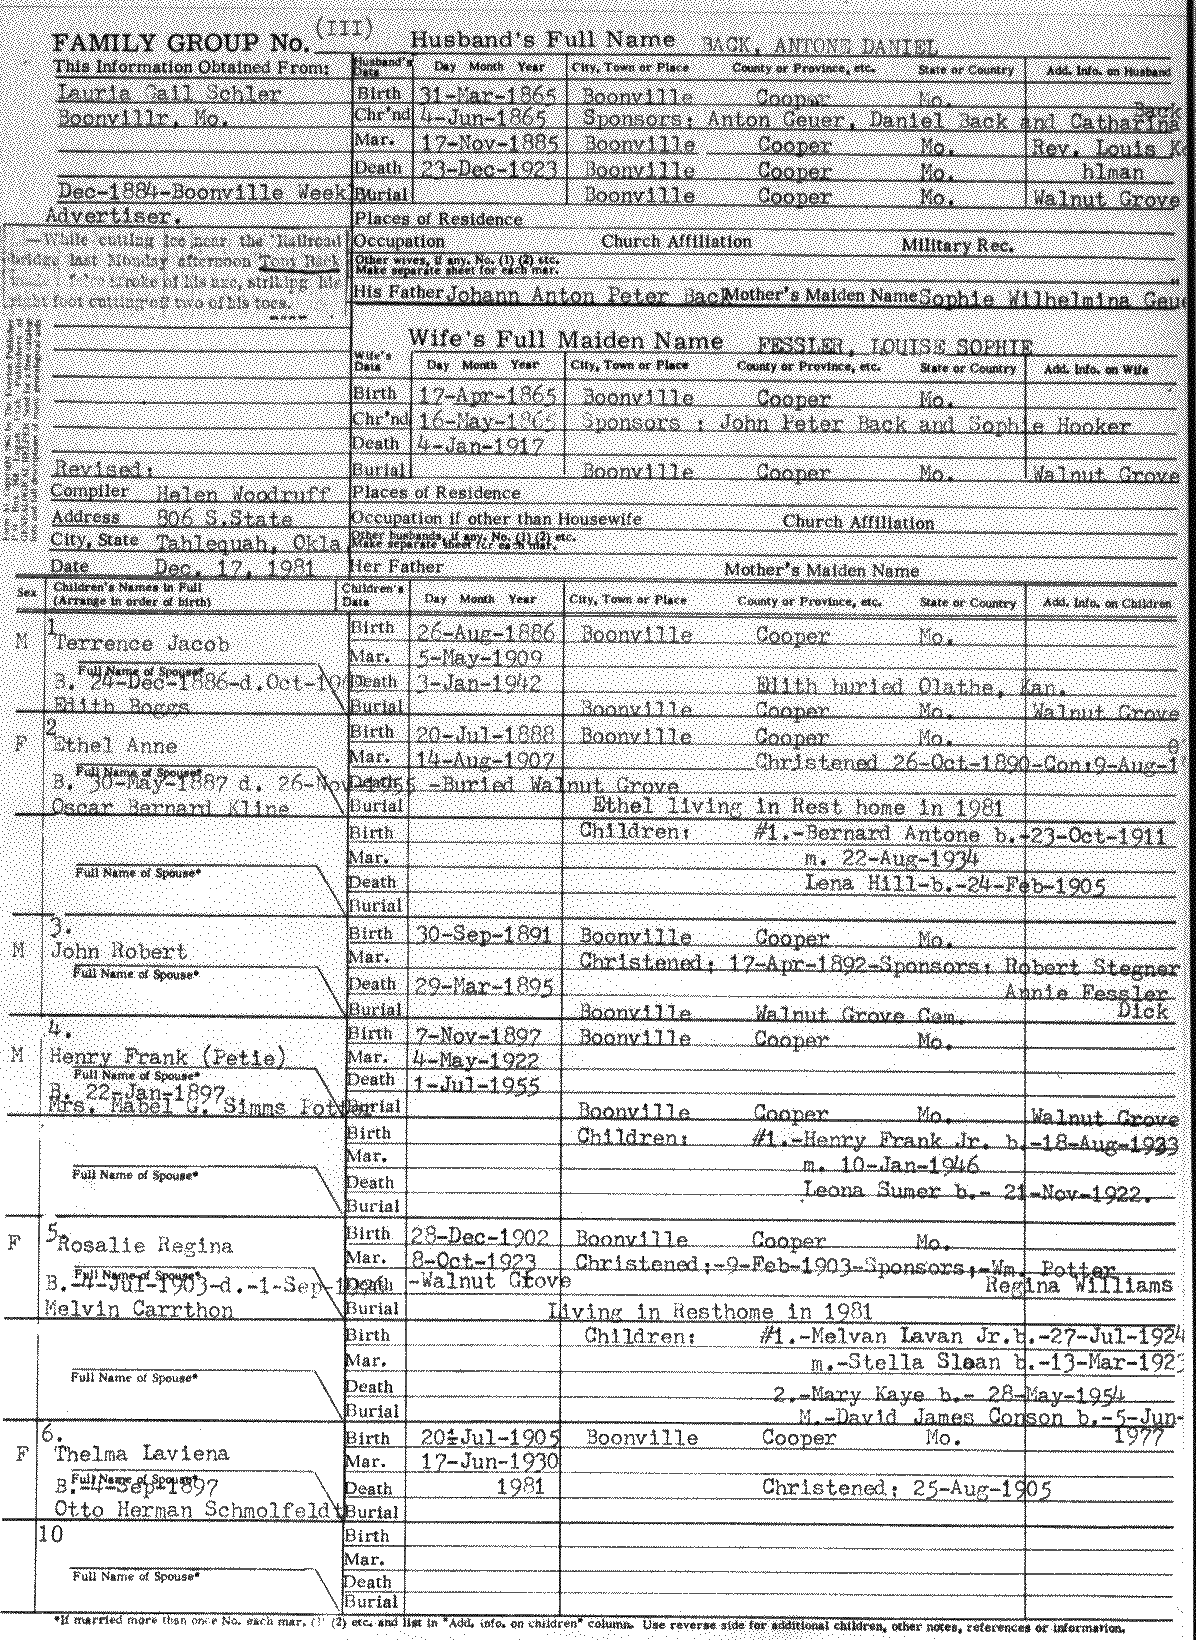 FAMILY GROUP No. (III) Husband's Full Name BACK, ANTONE DANIEL
This Information Obtained From: Husband's Data Day Month Year City, Town or Place County or Province, etc. State or Country Add. Info. on Husband
Lauria Gail Schler Birth 31-Mar-1865 Boonville Cooper Mo.
Boonvillr, Mo. Chr'nd 4-Jun-1865 Sponsors: Anton Geuer, Daniel Back and Catharina Back
Mar. 17-Nov-1885 Boonville Cooper Mo. Rev. Louis Ko
Death 23-Dec-1923 Boonville Cooper Mo. hlman
Dec-1884-Boonville Week Burial Boonville Cooper Mo. Walnut Grove
Advertiser. Places of Residence
—While cutting ice near the Railroad Occupation Church Affiliation Military Rec.
bridge last Monday afternoon Tom Back Other wives, if any. No. (1) (2) etc.
Make separate sheet for each mar.
stroke of his axe, striking his
foot cutting off two of his toes. His Father Johann Anton Peter Back Mother's Maiden Name Sophie Wilhelmina Geue
Wife's Full Maiden Name FESSLER, LOUISE SOPHIE
Wife's Data Day Month Year City, Town or Place County or Province, etc. State or Country Add. Info. on Wife
Birth 17-Apr-1865 Boonville Cooper Mo.
Chr'nd 16-May-1865 Sponsors : John Peter Back and Sophie Hooker
Death 4-Jan-1917
Revised: Burial Boonville Cooper Mo. Walnut Grove
Compiler Helen Woodruff Places of Residence
Address 806 S.State Occupation if other than Housewife Church Affiliation
City, State Tahlequah, Okla Other husbands, if any. No. (1) (2) etc.
Make separate sheet for each mar.
Date Dec. 17, 1981 Her Father Mother's Maiden Name
Sex Children's Names in Full (Arrange in order of birth) Children's Data Day Month Year City, Town or Place County or Province, etc. State or Country Add. Info. on Children
M 1 Terrence Jacob Birth 26-Aug-1886 Boonville Cooper Mo.
Mar. 5-May-1909
Full Name of Spouse*
B. 24-Dec-1886-d.Oct-19 Death 3-Jan-1942 Edith buried Olathe, Kan.
Edith Boggs Burial Boonville Cooper Mo. Walnut Grove
F 2 Ethel Anne Birth 20-Jul-1888 Boonville Cooper Mo.
Mar. 14-Aug-1907 Christened 26-Oct-1890-Con:9-Aug-1
Full Name of Spouse*
B. 30-May-1887 d. 26-Nov-1955 Death -Buried Walnut Grove
Oscar Bernard Kline Burial Ethel living in Rest home in 1981
Birth Children: #1.-Bernard Antone b.-23-Oct-1911
Mar. m. 22-Aug-1934
Full Name of Spouse* Death Lena Hill-b.-24-Feb-1905
Burial
3.
M John Robert Birth 30-Sep-1891 Boonville Cooper Mo.
Mar. Christened: 17-Apr-1892-Sponsors: Robert Stegner
Full Name of Spouse* Death 29-Mar-1895 Annie Fessler
Burial Boonville Walnut Grove Cem. Dick
4.
M Henry Frank (Petie) Birth 7-Nov-1897 Boonville Cooper Mo.
Mar. 4-May-1922
Full Name of Spouse* Death 1-Jul-1955
B. 22-Jan-1897
Mrs. Mabel G. Simms Potter Burial Boonville Cooper Mo. Walnut Grove
Birth Children: #1.-Henry Frank Jr. b.-18-Aug-1923
Mar. m. 10-Jan-1946
Full Name of Spouse* Death Leona Sumer b.- 21-Nov-1922.
Burial
F 5. Rosalie Regina Birth 28-Dec-1902 Boonville Cooper Mo.
Mar. 8-Oct-1923 Christened:-9-Feb-1903-Sponsors:-Wm. Potter
Full Name of Spouse*
B.-4-Jul-1903-d.-1-Sep- Death -Walnut Grove Regina Williams
Melvin Carrthon Burial Living in Resthome in 1981
Birth Children: #1.-Melvan Lavan Jr.b.-27-Jul-1924
Mar. m.-Stella Sloan b.-13-Mar-192
Full Name of Spouse* Death 2.-Mary Kaye b.- 28-May-1954
Burial M.-David James Conson b.-5-Jun-
6. 1977
F Thelma Laviena Birth 20-Jul-1905 Boonville Cooper Mo.
Mar. 17-Jun-1930
Full Name of Spouse*
B.-4-Sep-1897 Death 1981 Christened: 25-Aug-1905
Otto Herman Schmolfeldt Burial
10 Birth
Mar.
Full Name of Spouse* Death
Burial
*If married more than once No. each mar. (1) (2) etc. and list in "Add. info. on children" column. Use reverse side for additional children, other notes, references or information.